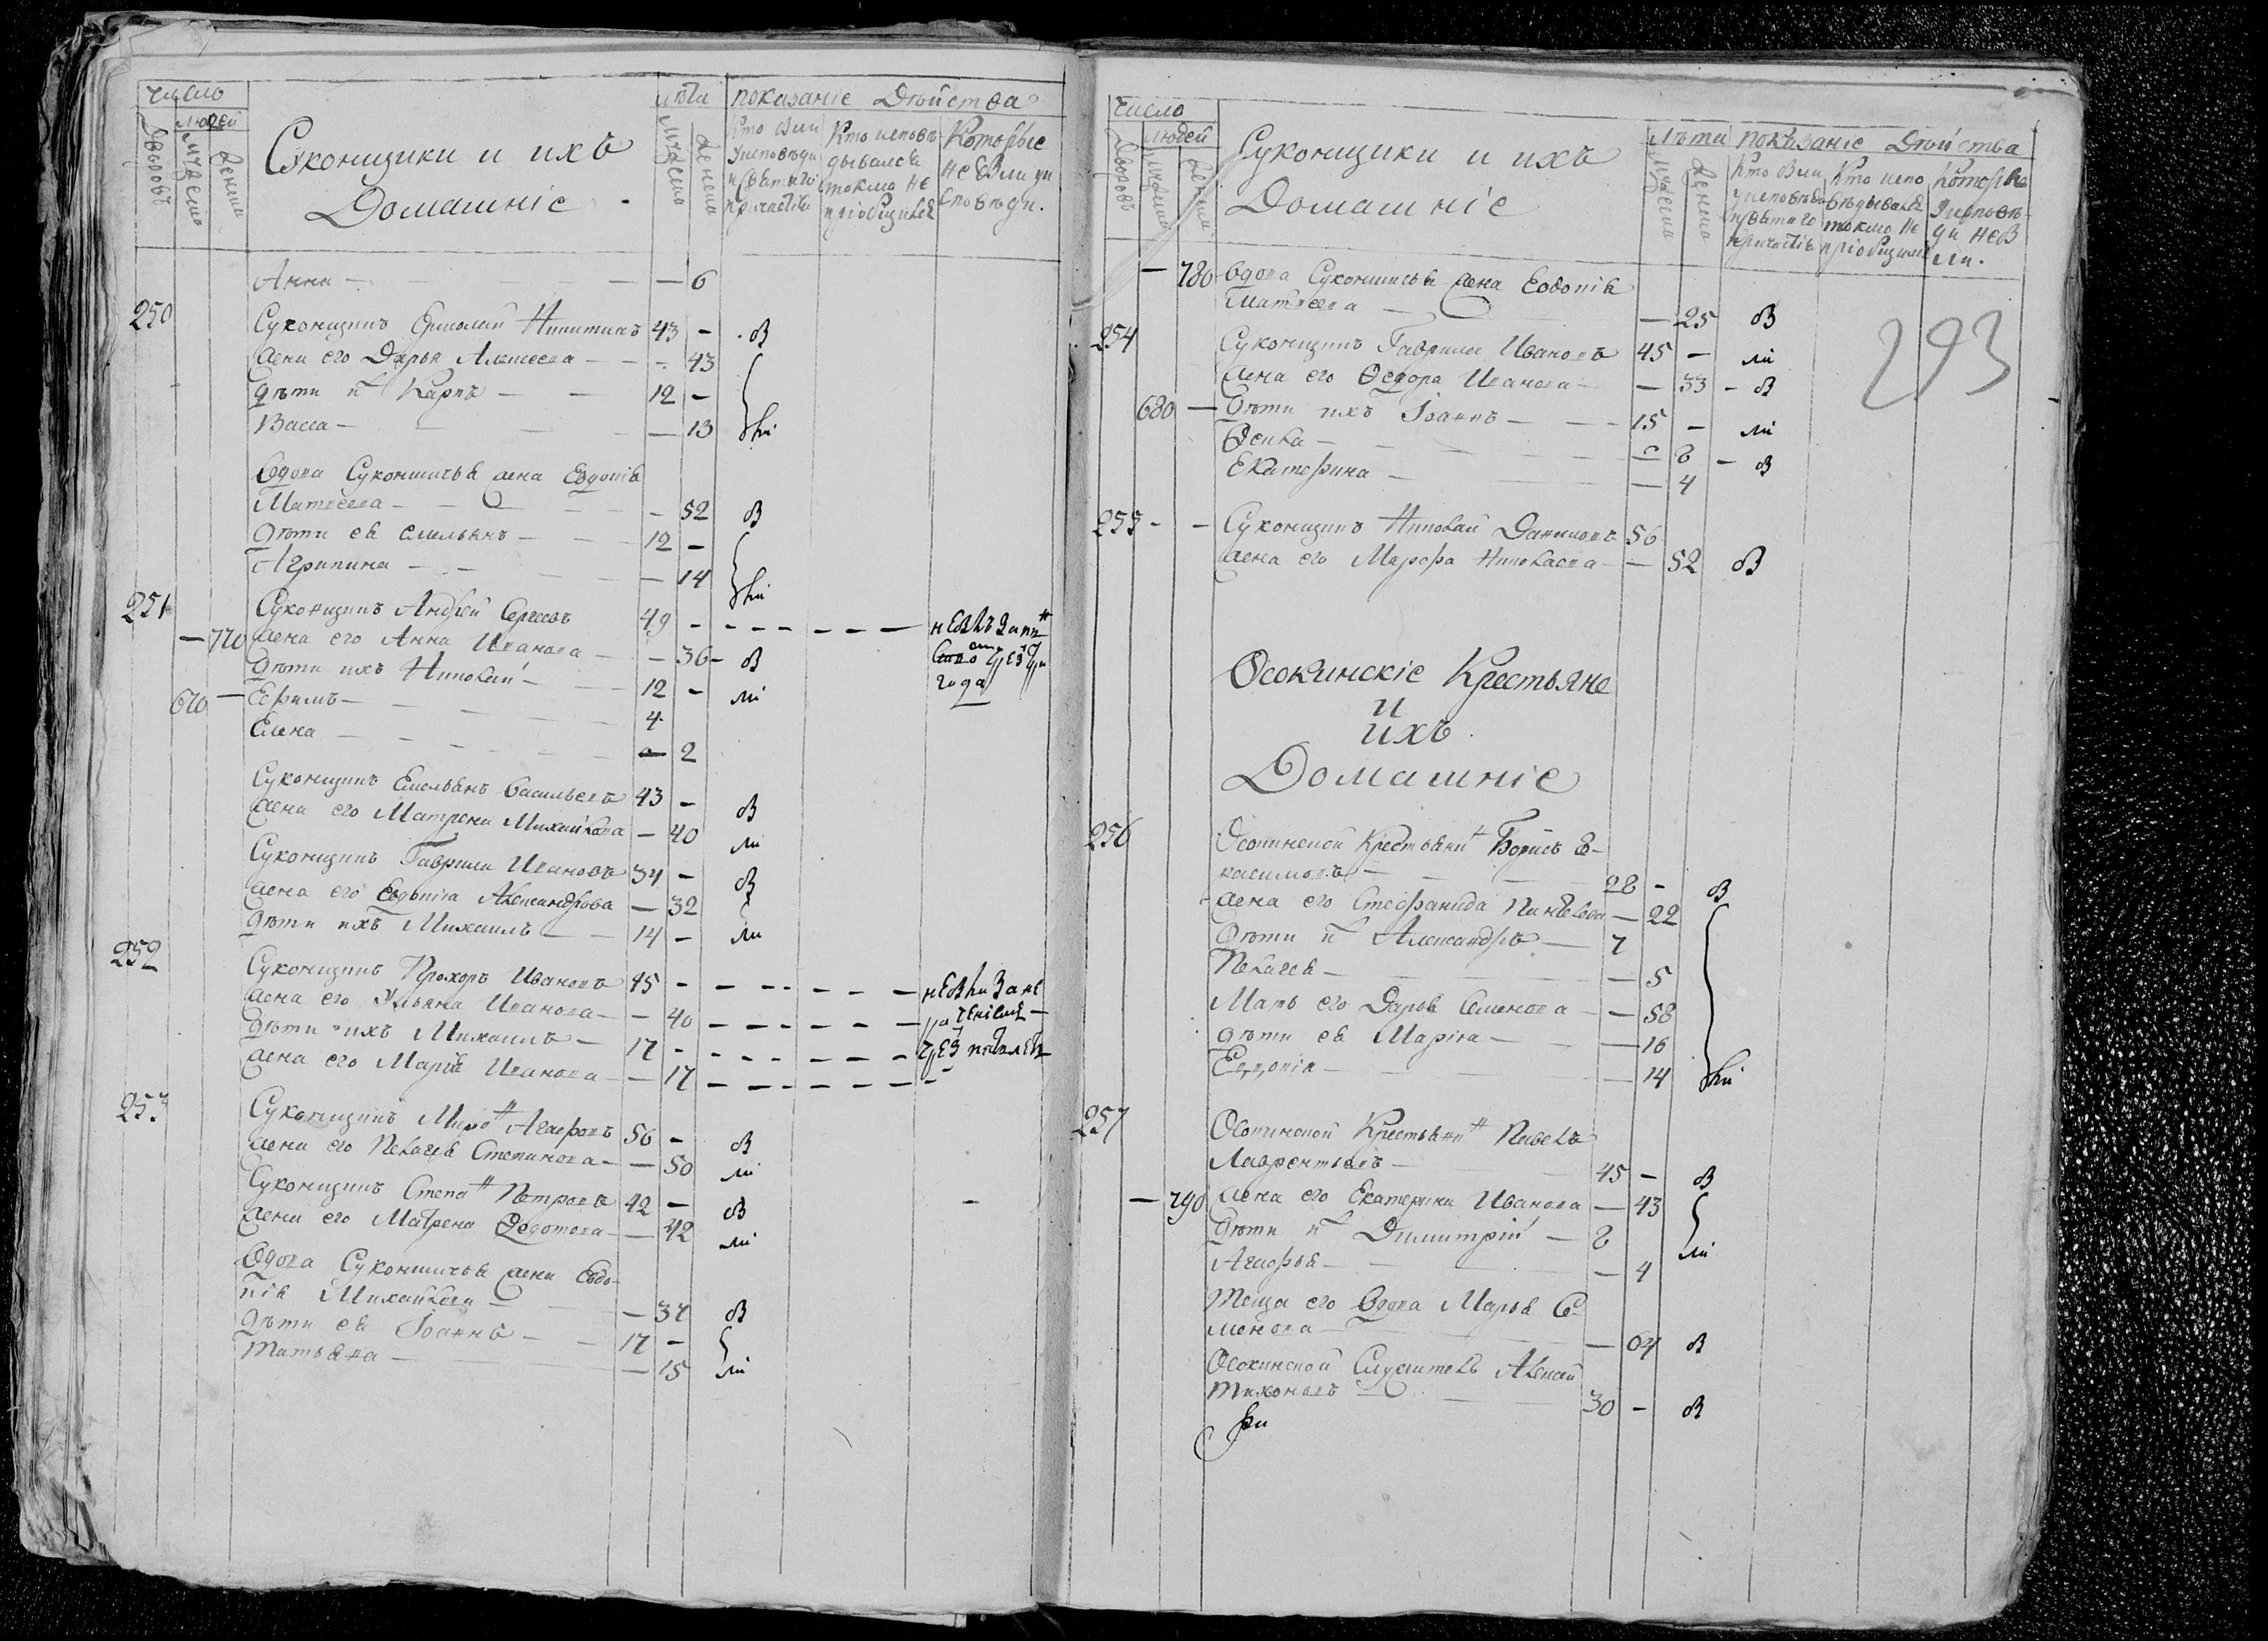 число
людей
Дворовъ
Мужеска
Женска
Суконщики и ихъ
Домашніе
лѣта
Мужеска
Женска
показаніе Дѣйства
Кто были
у исповѣди
и святаго
причастія
Кто исповѣ-
дывался
токмо не
пріобщился
Которые
не были у
исповѣди.
Анна — 6
250 Суконщикъ Ермолай Никитинъ 43 — б
жена его Дарья Алексеева — 43
дѣти их Карпъ — 12 —
Васса — 13 ли
Вдова Суконничья жена Евдокія
Матвеева — 52 б
дѣти ея Емельянъ — 12 —
Агрипина — 14 ли
251 Суконщикъ Андрей Сергеевъ 49 —
— 770 жена его Анна Иванова — 36 — б
дѣти ихъ Николай — 12 — ли
670 — Ефимъ — 4
Елена — 2
года
Суконщикъ Емельянъ Васильевъ 43 — б
жена его Матрена Михайлова — 40 ли
Суконщикъ Гаврила Ивановъ 34 — б
жена его Евдокіа Александрова — 32
дѣти ихъ Михаилъ — 14 — ли
252 Суконщикъ Прохоръ Ивановъ 45 —
жена его Ульяна Иванова — 40
дѣти ихъ Михаилъ — 17 —
жена его Марья Иванова — 17
253 Суконщикъ Миронъ Агафовъ 56 — б
жена его Пелагея Степанова — 50 ли
Суконщикъ Степанъ Петровъ 42 — б
жена его Матрена Федотова — 42 ли
Вдова Суконничья жена Евдо-
кія Михайлова — 37 б
дѣти ея Іоаннъ — 17 —
Татьяна — 15 ли
число
людей
Дворовъ
Мужеска
Женска
Суконщики и ихъ
Домашніе
лѣта
Мужеска
Женска
показаніе Дѣйства
Кто были
у исповѣди
и святаго
причастія
Кто испо-
вѣдывался
токмо не
пріобщился
Которые
у исповѣ-
ди не бы-
ли.
293
— 780 вдова Суконничья жена Евдокія
Матвеева — 25 б
254 Суконщикъ Гаврила Ивановъ 45 — ли
жена его Федора Иванова — 33 — б
680 — дѣти ихъ Іоаннъ — 15 — ли
Фекла — 8 — б
Екатерина — 4
255 — — Суконщикъ Николай Даниловъ 56
жена его Марфа Николаева — 52 б
Осокинскіе Крестьяне
и
ихъ
Домашніе
256 Осокинской Крестьянинъ Борисъ Е-
касимовъ — 28 — б
жена его Стефанида — 22
дѣти их Александръ — 7
Пелагея — 5
Мать его Дарья Семенова — 58
дѣти ея Маріа — 16
Евдокія — 14 ли
257 Осокинской Крестьянинъ Павелъ
Лаврентьевъ — 45 — б
— 790 жена его Екатерина Иванова — 43
дѣти их Димитрій — 8 ли
Агафья — 4
Теща его Вдова Марья Се-
менова — 64 б
Осокинской Служитель Алексей
Тихоновъ — 30 — б